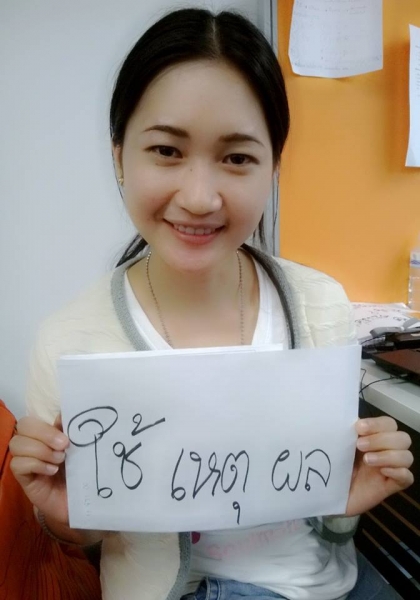 ใช้ เหตุ ผล